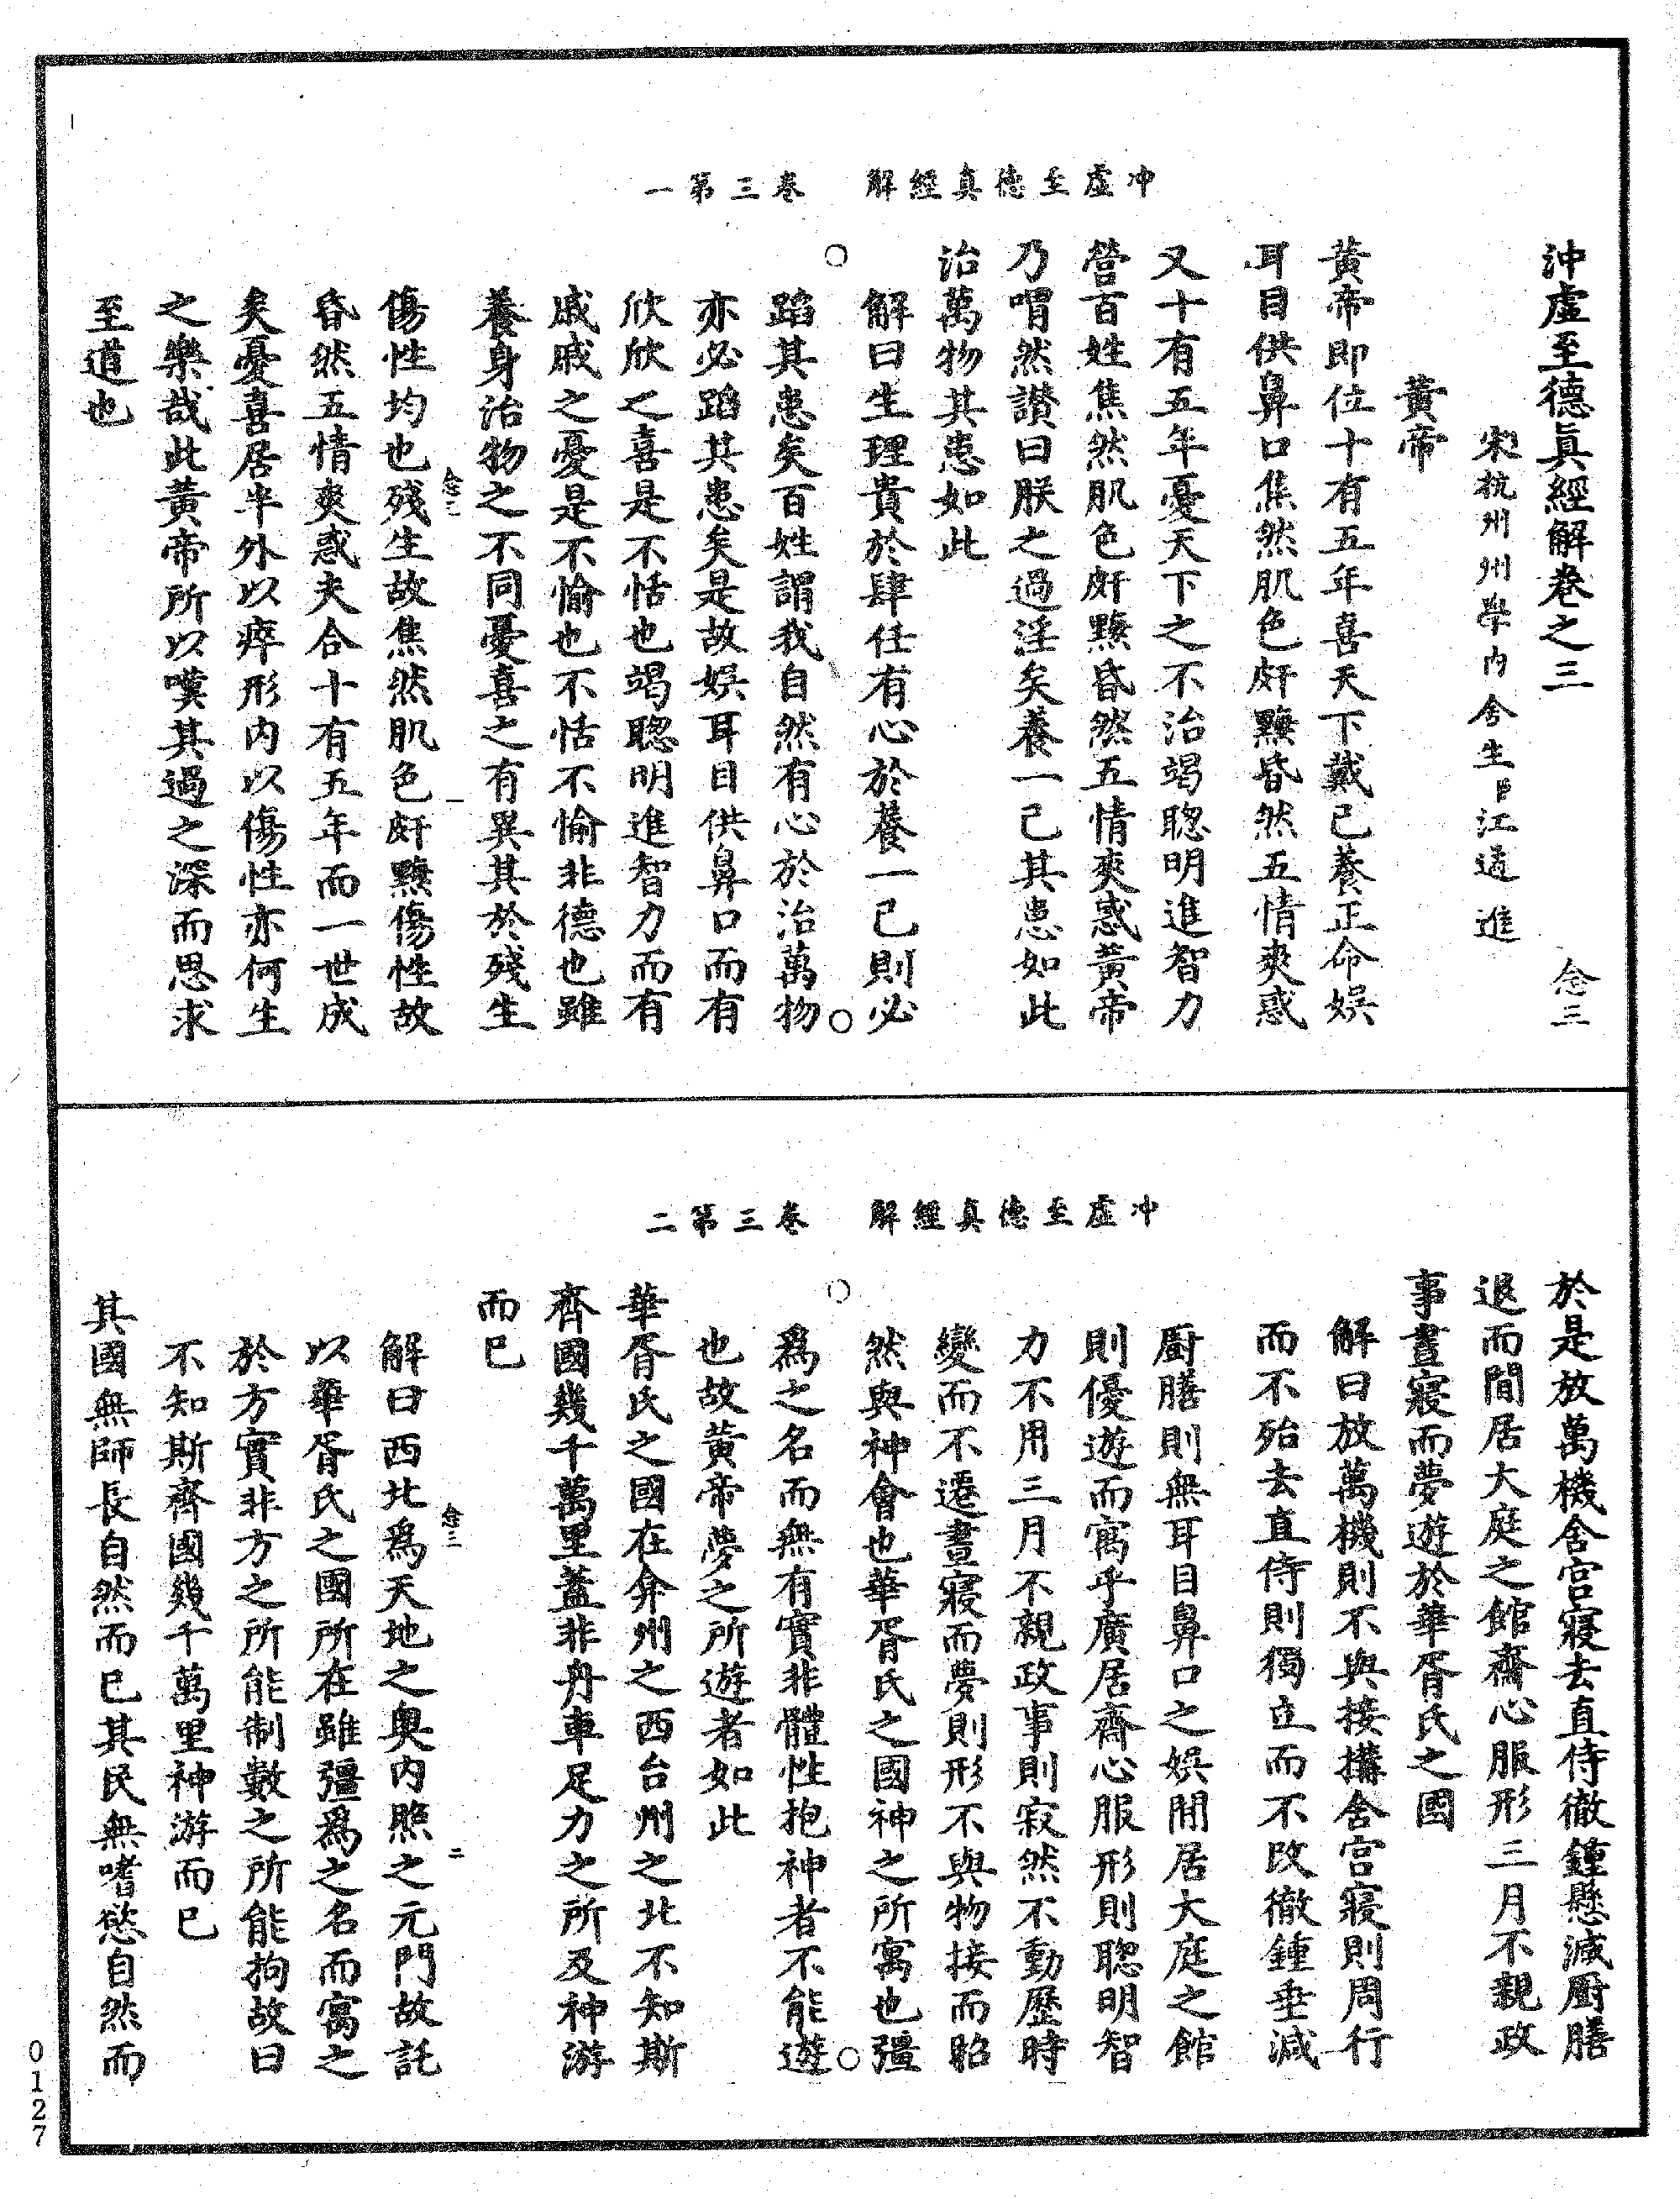 冲虛至德真經解　卷三第一
沖虛至德眞經解卷之三　念三
宋杭州州學內舍生臣江遹進
黃帝
黃帝即位十有五年喜天下戴己養正命娛
耳目供鼻口焦然肌色皯黣昏然五情爽惑
又十有五年憂天下之不治竭聦明進智力
營百姓焦然肌色皯黣昏然五情爽惑黃帝
乃喟然讃曰朕之過淫矣養一己其患如此
治萬物其患如此
解曰生理貴於肆任有心於養一己則必
蹈其患矣百姓謂我自然有心於治萬物
亦必蹈其患矣是故娛耳目供鼻口而有
欣欣之喜是不恬也竭聦明進智力而有
戚戚之憂是不愉也不恬不愉非德也雖
養身治物之不同憂喜之有異其於殘生
念三　一
傷性均也殘生故焦然肌色皯黣傷性故
昏然五情爽惑夫合十有五年而一世成
矣憂喜居半外以瘁形內以傷性亦何生
之樂哉此黃帝所以嘆其過之深而思求
至道也
冲虛至德真經解　卷三第二
於是放萬機舍宫寢去直侍徹鍾懸減厨膳
退而閒居大庭之館齋心服形三月不親政
事晝寢而夢遊於華胥氏之國
解曰放萬機則不與接搆舍宫寢則周行
而不殆去直侍則獨立而不改徹鍾垂減
厨膳則無耳目鼻口之娛閒居大庭之館
則優遊而寓乎廣居齋心服形則聦明智
力不用三月不親政事則寂然不動歷時
變而不遷晝寢而夢則形不與物接而昭
然與神會也華胥氏之國神之所寓也彊
爲之名而無有實非體性抱神者不能遊
也故黃帝夢之所遊者如此
華胥氏之國在弇州之西台州之北不知斯
齊國幾千萬里蓋非舟車足力之所及神游
而已
念三　二
解曰西北爲天地之奥內照之元門故託
以華胥氏之國所在雖彊爲之名而寓之
於方實非方之所能制數之所能拘故曰
不知斯齊國幾千萬里神游而已
其國無師長自然而已其民無嗜慾自然而
0127